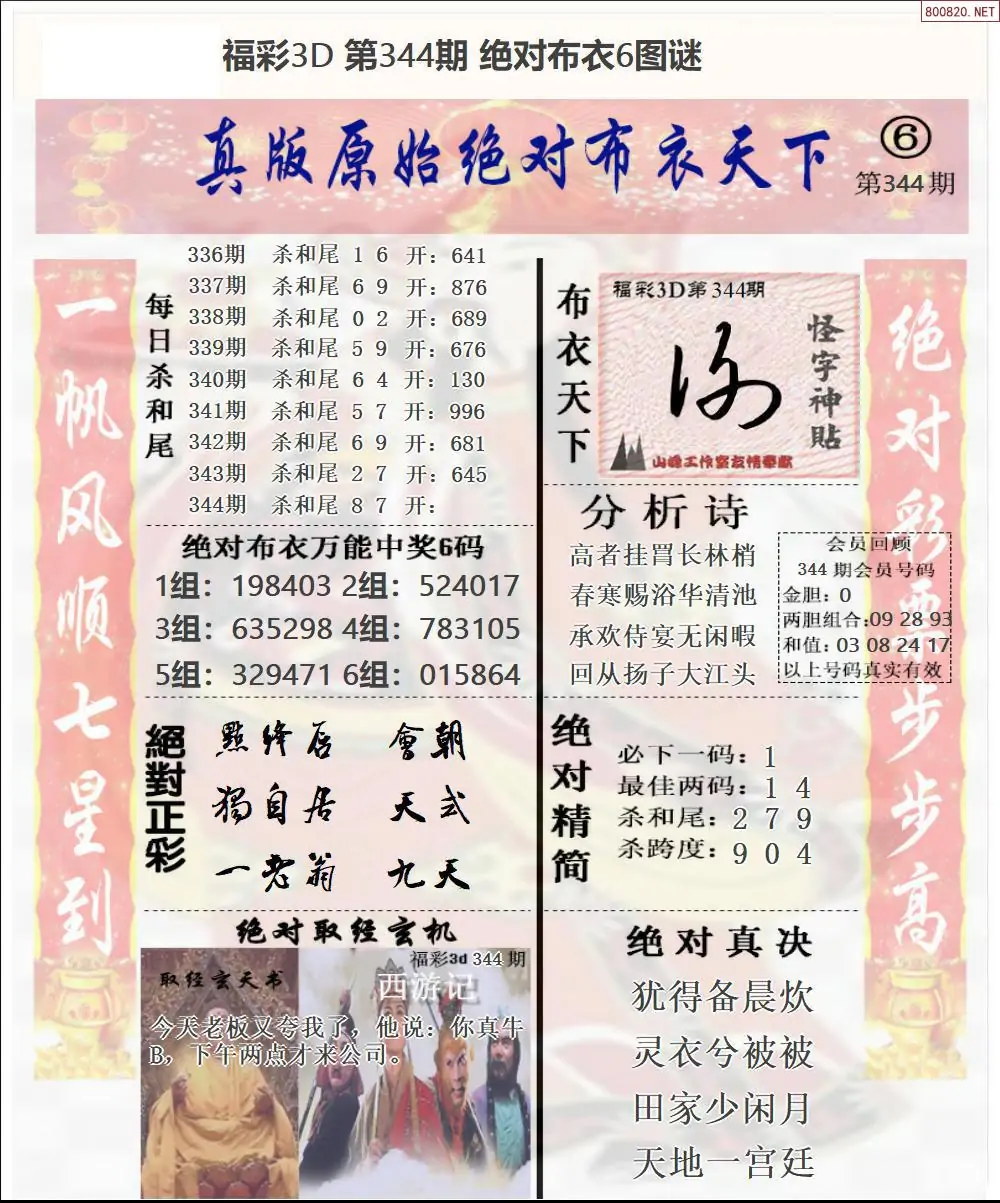 800820.NET
福彩3D 第344期 绝对布衣6图谜
真版原始绝对布衣天下
6
第344期
一帆风顺七星到
每日杀和尾
336期 杀和尾 1 6 开：641
337期 杀和尾 6 9 开：876
338期 杀和尾 0 2 开：689
339期 杀和尾 5 9 开：676
340期 杀和尾 6 4 开：130
341期 杀和尾 5 7 开：996
342期 杀和尾 6 9 开：681
343期 杀和尾 2 7 开：645
344期 杀和尾 8 7 开：
绝对布衣万能中奖6码
1组：198403 2组：524017
3组：635298 4组：783105
5组：329471 6组：015864
絕對正彩
點绛唇 會朝
獨自居 天武
一老翁 九天
绝对取经玄机
福彩3d 344期
取经玄天书
西游记
今天老板又夸我了，他说：你真牛
B，下午两点才来公司。
布衣天下
福彩3D第344期
怪字神貼
山峰工作室友情奉献
分析诗
高者挂罥长林梢
春寒赐浴华清池
承欢侍宴无闲暇
回从扬子大江头
会员回顾
344 期会员号码
金胆：0
两胆组合:09 28 93
和值：03 08 24 17
以上号码真实有效
绝对精简
必下一码：1
最佳两码：1 4
杀和尾：2 7 9
杀跨度：9 0 4
绝对真决
犹得备晨炊
灵衣兮被被
田家少闲月
天地一宫廷
绝对彩票步步高